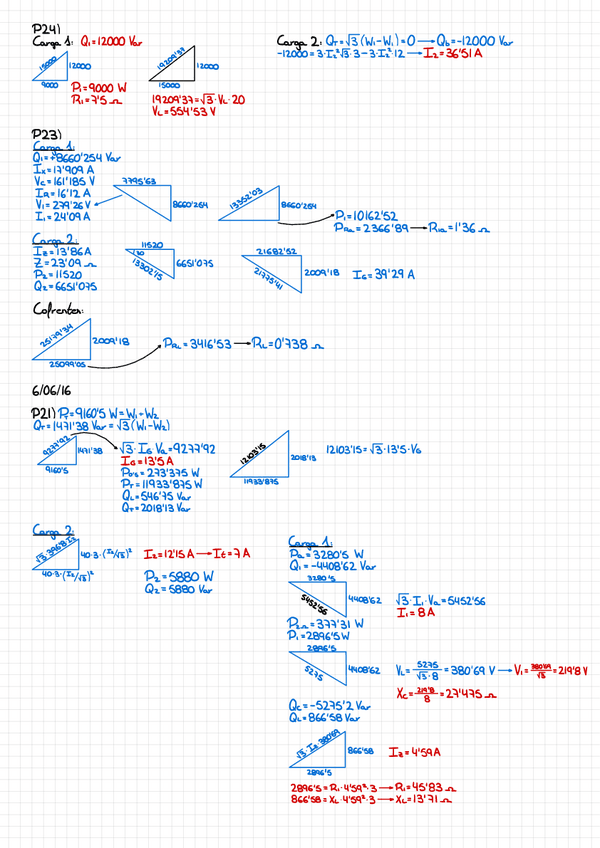 P24)
Carga 1: Q₁=12000 Var
15000
12000
9000
19209'37
12000
15000
P₁=9000 W
R₁=7'5 Ω
19209'37=√3·V_L·20
V_L=554'53 V
Carga 2: Q_T=√3(W₁-W₁)=0 → Q_b=-12000 Var
-12000=3·I₂²√3·3-3·I₂²·12 → I₂=36'51 A
P23)
Carga 1:
Q₁=+8660'254 Var
I_x=17'909 A
V_c=161'185 V
I_R=16'12 A
V₁=279'26 V
I₁=24'09 A
7795'63
8660'254
13352'03
8660'254
P₁=10162'52
P_Ra=2366'89 → R_1a=1'36 Ω
Carga 2:
I₂=13'86A
Z=23'09 Ω
P₂=11520
Q₂=6651'075
11520
30
13302'15
6651'075
21682'52
21775'41
2009'18
I_G=39'29 A
Cofrentes:
25179'34
2009'18
25099'05
P_RL=3416'53 → R_L=0'738 Ω
6/06/16
P21) P_T=9160'5 W=W₁+W₂
Q_T=1471'38 Var=√3(W₁-W₂)
9277'92
1471'38
9160'5
√3·I_G V_a=9277'92
I_G=13'5 A
P_0'5=273'375 W
P_T=11933'875 W
Q_L=546'75 Var
Q_T=2018'13 Var
12103'15
2018'13
11933'875
12103'15=√3·13'5·V_G
Carga 2:
√3·396'8·I₂
40·3·(I₂/√3)²
40·3·(I₂/√3)²
I₂=12'15 A → I_f=7 A
P₂=5880 W
Q₂=5880 Var
Carga 1:
P_a=3280'5 W
Q₁=-4408'62 Var
3280'5
5452'56
4408'62
√3·I₁·V_a=5452'56
I₁=8 A
P_2Ω=377'31 W
P₁=2896'5W
2896'5
5275
4408'62
V_L=5275/√3·8=380'69 V → V₁=380'69/√3=219'8 V
X_C=219'8/8=27'475 Ω
Q_C=-5275'2 Var
Q_L=866'58 Var
√3·I₂·380'69
866'58
2896'5
I_Z=4'59A
2896'5=R₁·4'59²·3 → R₁=45'83 Ω
866'58=X_L·4'59²·3 → X_L=13'71 Ω